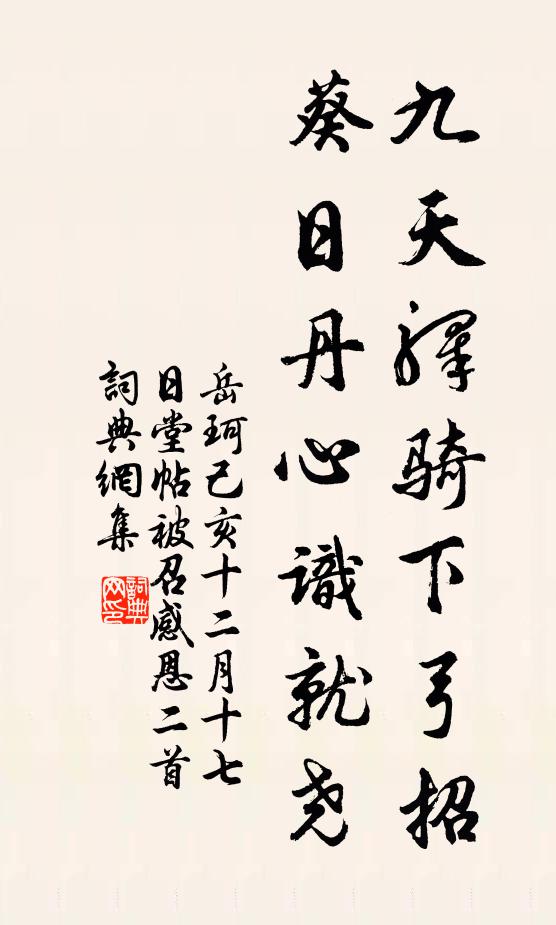 九天驛騎下弓招
葵日丹心識就尧
岳珂己亥十二月十七
日堂帖被召感恩二首
詞典網集
詞典网印